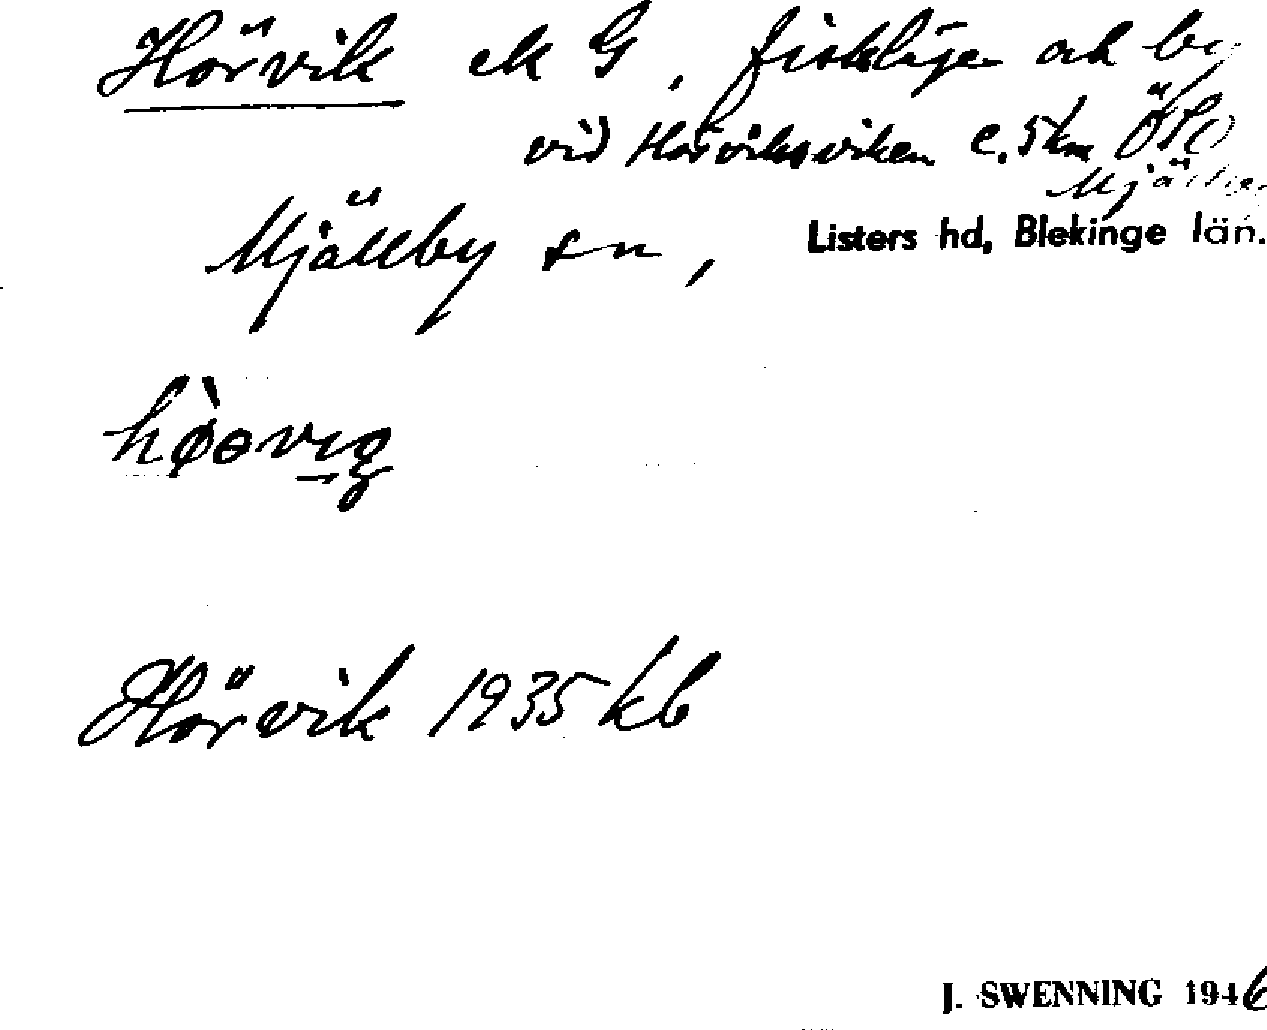 Hörvik ek G, fiskläge och by
vid Hörviksviken c. 5 km ÖSO
Mjällby
Mjällby sn, Listers hd, Blekinge län.
hòɵvıg
Hörvik 1935 kb
J. SWENNING 1946